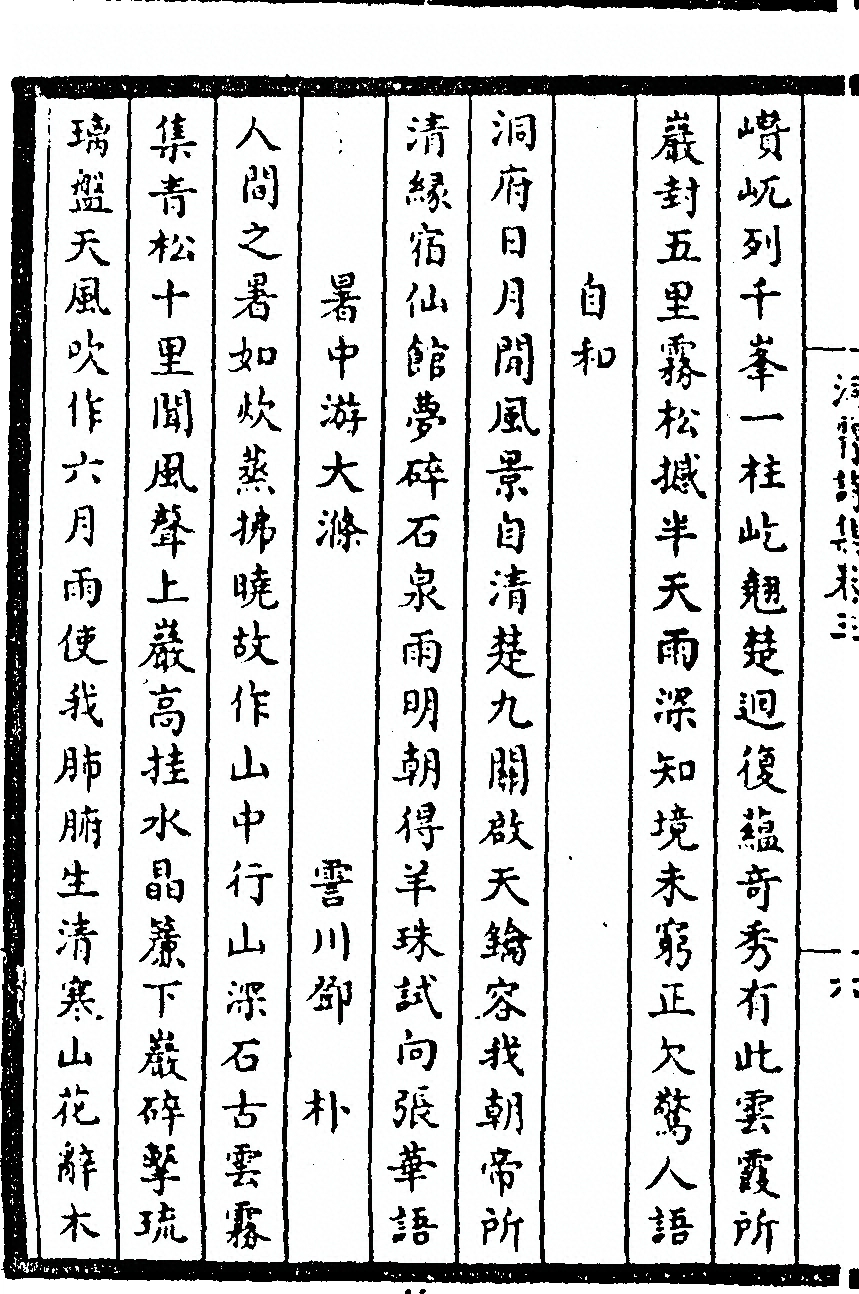 洞霄詩集卷三
六
巑岏列千峯一柱屹翹楚迴復蘊奇秀有此雲霞所
巖封五里霧松撼半天雨深知境未窮正欠驚人語
自和
洞府日月閒風景自清楚九關啟天鑰容我朝帝所
清緣宿仙館夢碎石泉雨明朝得羊珠試向張華語
暑中游大滌
霅川鄧　朴
人間之暑如炊蒸拂曉故作山中行山深石古雲霧
集青松十里聞風聲上巖高挂水晶簾下巖碎擊琉
璃盤天風吹作六月雨使我肺腑生清寒山花辭木